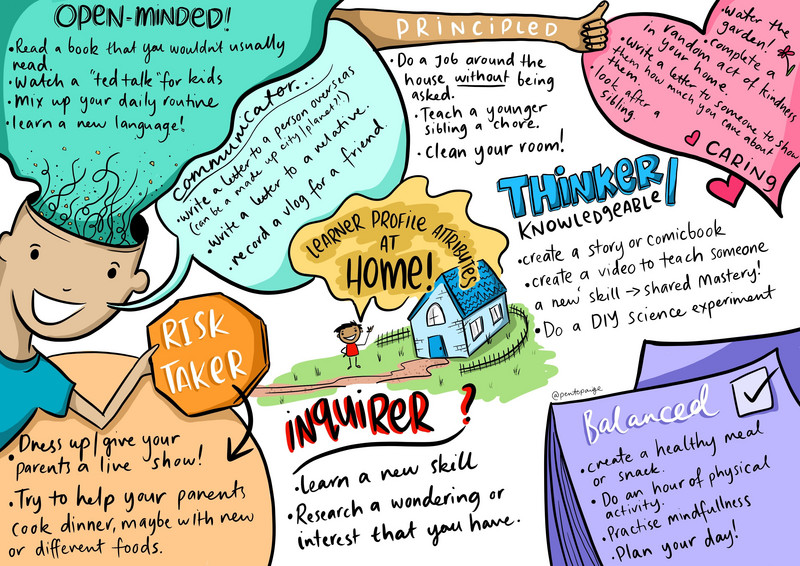 OPEN-MINDED!
•Read a book that you wouldn't usually
read.
•Watch a "ted talk" for kids
•Mix up your daily routine
•learn a new language!
communicator...
•write a letter to a person overseas
(can be a made up city/planet?!)
•write a letter to a relative.
•record a vlog for a friend.
PRINCIPLED
•Do a job around the
house without being
asked.
•Teach a younger
sibling a chore.
•Clean your room!
•Water the
garden!
•complete a
random act of kindness
in your home.
•Write a letter to someone to show
them how much you care about
them.
•look after a
sibling.
CARING
THINKER/
KNOWLEDGEABLE
•create a story or comicbook
•create a video to teach someone
a new skill → shared Mastery!
•Do a DIY science experiment
LEARNER PROFILE ATTRIBUTES
AT
HOME!
RISK
TAKER
•Dress up/give your
parents a live show!
•Try to help your parents
cook dinner, maybe with new
or different foods.
@penitopaige
INQUIRER ?
•Learn a new skill
•Research a wondering or
interest that you have.
Balanced
•create a healthy meal
or snack.
•Do an hour of physical
activity.
•Practise mindfullness
•Plan your day!